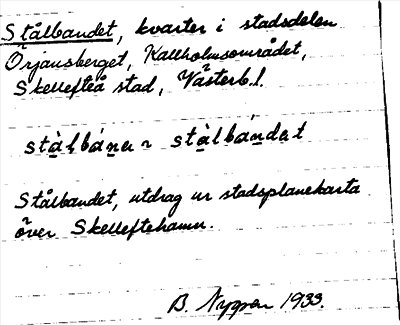 Stålbandet, kvarter i stadsdelen
Örjansberget, Kallholmsområdet,
Skellefteå stad, Västerb.l.
stålbandet
Stålbandet, utdrag ur stadsplanekarta
över Skelleftehamn.
B. Nygren 1933.